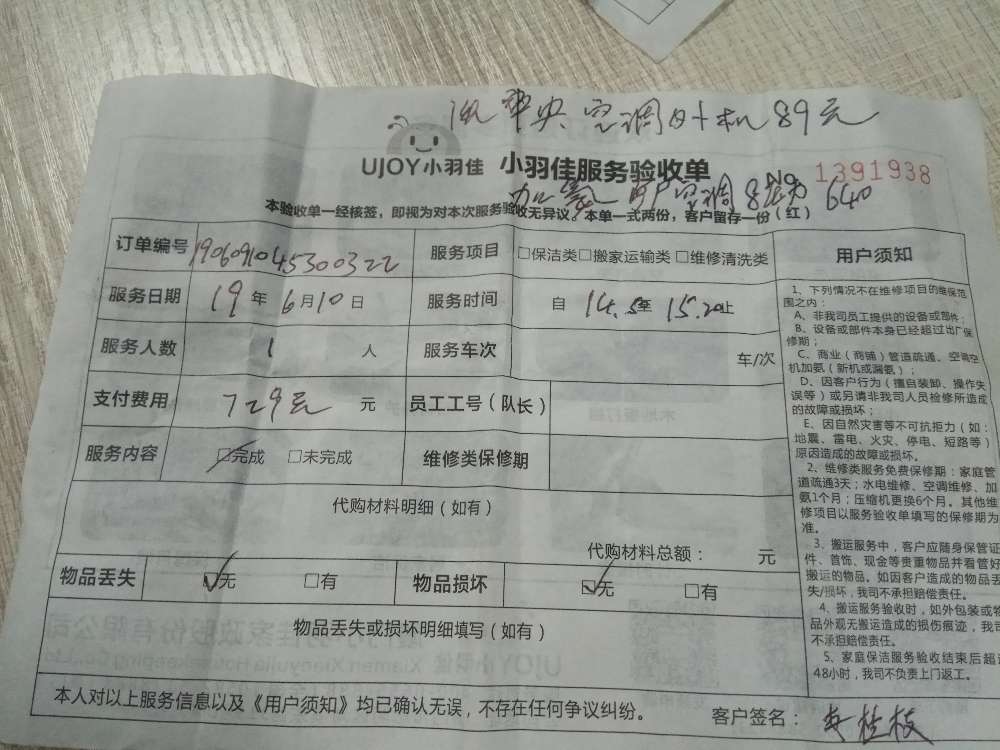 洗中央空调外机89元
UJOY小羽佳 小羽佳服务验收单
No 1391938
加氟 空调 640
本验收单一经核签，即视为对本次服务验收无异议，本单一式两份，客户留存一份（红）
订单编号 1906091045300322 服务项目 □保洁类□搬家运输类□维修清洗类
服务日期 19年6月10日 服务时间 自14.5至15.20止
服务人数 1人 服务车次 车/次
支付费用 729元 元 员工工号（队长）
服务内容 ☑完成 □未完成 维修类保修期
代购材料明细（如有）
代购材料总额： 元
物品丢失 ☑无 □有 物品损坏 ☑无 □有
物品丢失或损坏明细填写（如有）
本人对以上服务信息以及《用户须知》均已确认无误，不存在任何争议纠纷。
客户签名： 桂枝
用户须知
1、下列情况不在维修项目的维保范
围之内：
A、非我司员工提供的设备或部件；
B、设备或部件本身已经超过出厂保
修期；
C、商业（商铺）管道疏通、空调空
机加氨（新机或漏氨）；
D、因客户行为（擅自装卸、操作失
误等）或另请非我司人员检修所造成
的故障或损坏；
E、因自然灾害等不可抗拒力（如：
地震、雷电、火灾、停电、短路等）
原因造成的故障或损坏。
2、维修类服务免费保修期：家庭管
道疏通3天；水电维修、空调维修、加
氨1个月；压缩机更换6个月。其他维
修项目以服务验收单填写的保修期为
准。
3、搬运服务中，客户应随身保管证
件、首饰、现金等贵重物品并看管好
搬运的物品。如因客户造成的物品丢
失/损坏，我司不承担赔偿责任。
4、搬运服务验收时，如外包装或物
品外观无搬运造成的损伤痕迹，我司
不承担赔偿责任。
5、家庭保洁服务验收结束后超过
48小时，我司不负责上门返工。